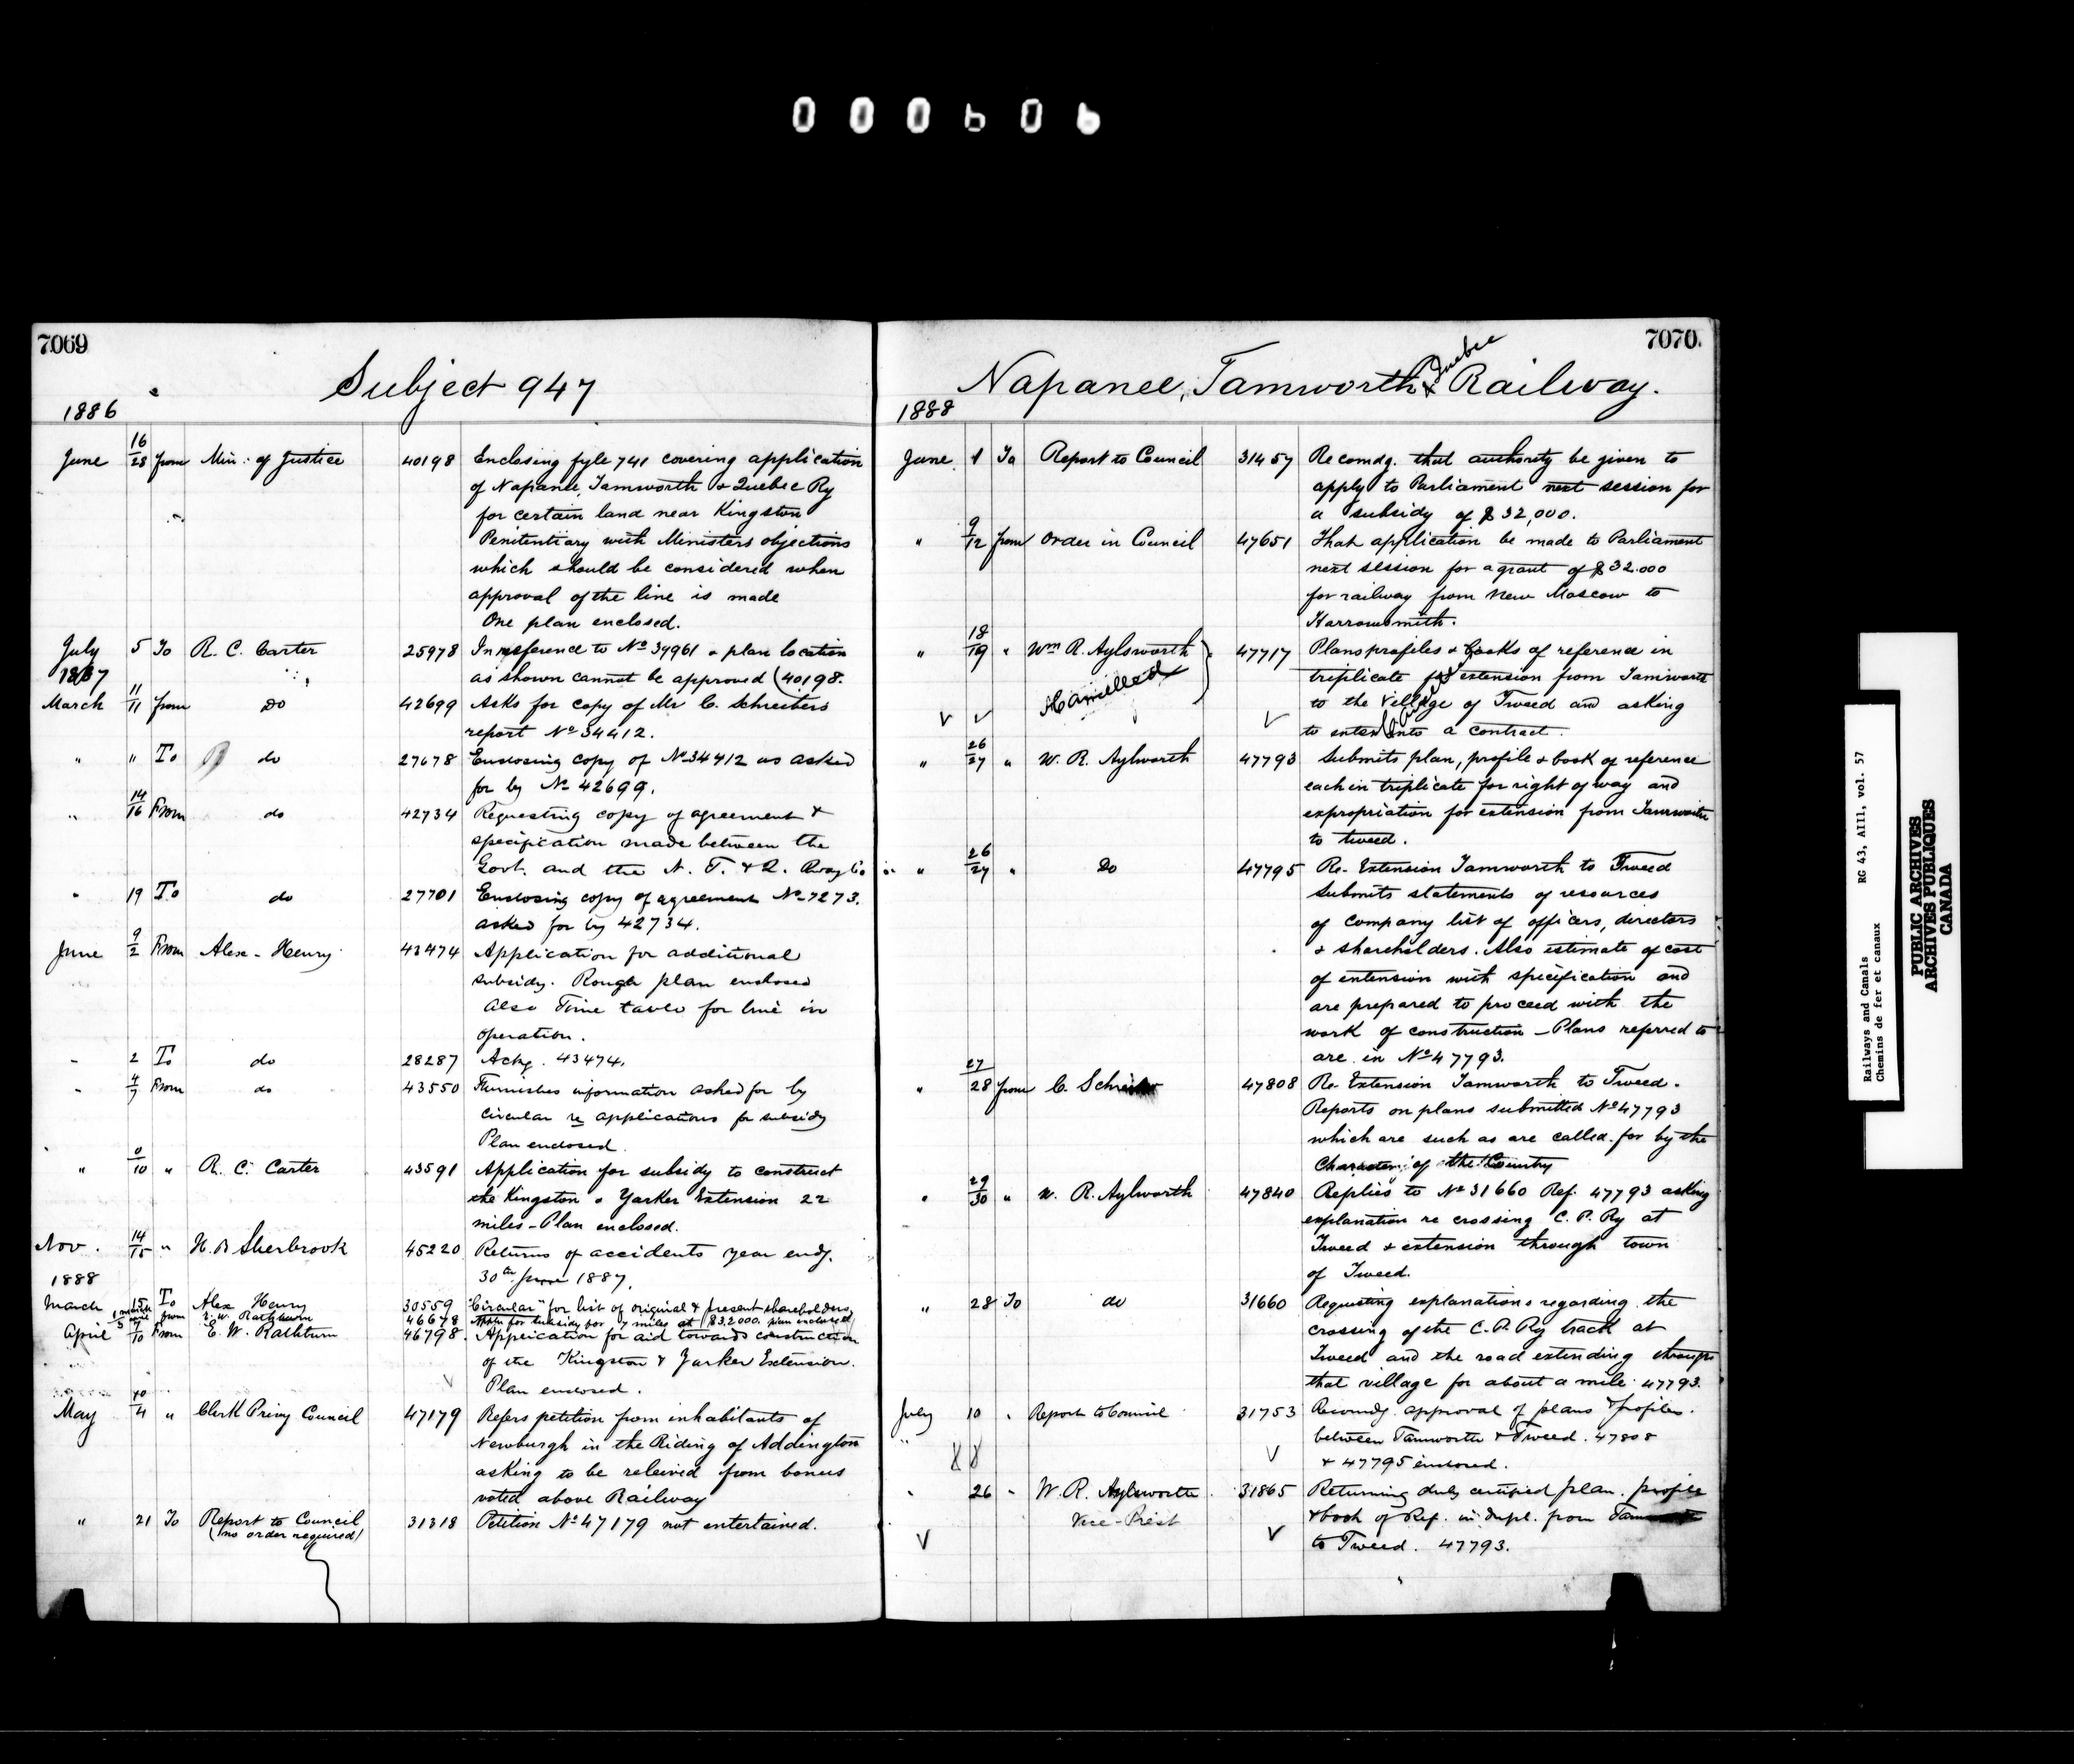 000606
7069
Subject 947
1886
June 16/28 from Min: of Justice 40198 Enclosing fyle 741 covering application
of Napanee, Tamworth & Quebec Ry
for certain land near Kingston
Penitentiary with Ministers objections
which should be considered when
approval of the line is made
One plan enclosed.
July 5 To R. C. Carter 25978 In reference to No 39961 & plan location
1887
as shown cannot be approved (40198.
March 11/11 from Do 42699 Asks for copy of Mr C. Schreibers
report No 34412.
" " To do 27678 Enclosing copy of No 34412 as asked
for by No 42699.
" 14/16 From do 42734 Requesting copy of agreement &
specification made between the
Govt. and the N. T. & Q. Rway Co
" 19 To do 27701 Enclosing copy of agreement No 7273.
asked for by 42734.
June 9/2 From Alex - Henry 43474 Application for additional
subsidy. Rough plan enclosed
Also Time table for line in
operation.
" 2 To do 28287 Ackg. 43474.
" 4/7 From do 43550 Furnishes information asked for by
circular re applications for subsidy
Plan enclosed.
" /10 " R. C. Carter 43591 Application for subsidy to construct
the Kingston & Yarker Extension 22
miles - Plan enclosed.
Nov. 14/15 " H. B Sherbrook 45220 Returns of accidents year endg.
30th June 1887.
1888
March 15 To Alex Henry 30559 "Circular" for list of original & present shareholders
from E. W. Rathbun 46678 Appn for subsidy for 7 miles at $32000. plan inclosed
April 7/10 From E. W. Rathbun 46798. Application for aid towards construction
of the Kingston & Yarker Extension.
Plan enclosed.
May /4 " Clerk Privy Council 47179 Refers petition from inhabitants of
Newburgh in the Riding of Addington
asking to be releived from bonus
voted above Railway
" 21 To Report to Council 31318 Petition No 47179 not entertained.
(no order required)
7070.
Napanee, Tamworth & Quebec Railway.
1888
June 1 To Report to Council 31457 Recomdg. that authority be given to
apply to Parliament next session for
a subsidy of $32,000.
" 9/12 from Order in Council 47651 That application be made to Parliament
next session for a grant of $32.000
for railway from New Moscow to
Harrowsmith.
" 18/19 " Wm R. Aylsworth 47717 Plans profiles & books of reference in
triplicate for extension from Tamworth
Cancelled
to the village of Tweed and asking
to enter into a contract.
" 26/27 " W. R. Aylworth 47793 Submits plan, profile & book of reference
each in triplicate for right of way and
expropriation for extension from Tamworth
to tweed.
" 26/27 " Do 47795 Re- Extension Tamworth to Tweed
Submits statements of resources
of company list of officers, directors
& shareholders. Also estimate of cost
of extension with specification and
are prepared to proceed with the
work of construction - Plans referred to
are in No 47793.
" 27/28 from C. Schreiber 47808 Re- Extension Tamworth to Tweed.
Reports on plans submitted No 47793
which are such as are called for by the
Character of the Country
" 29/30 " W. R. Aylworth 47840 Replies to No 31660 Ref. 47793 asking
explanation re crossing C. P. Ry at
Tweed & extension through town
of Tweed.
" 28 To do 31660 Requesting explanations regarding the
crossing of the C. P. Ry track at
Tweed and the road extending through
that village for about a mile 47793.
July 10 " Report to Council 31753 Recomdg. approval of plans & profiles.
between Tamworth & Tweed. 47808
& 47795 enclosed.
" 26 " W. R. Aylsworth 31865 Returning duly certified plan. profile
Vice-Prest
& book of Ref. in dupl. from
to Tweed. 47793.
Railways and Canals RG 43, AIII, vol. 57
Chemins de fer et canaux
PUBLIC ARCHIVES
ARCHIVES PUBLIQUES
CANADA